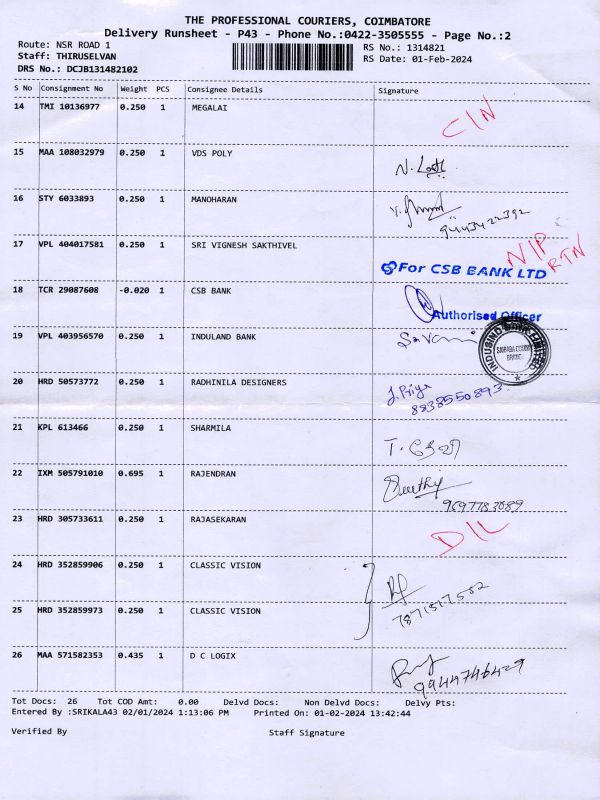 THE PROFESSIONAL COURIERS, COIMBATORE
Delivery Runsheet - P43 - Phone No.:0422-3505555 - Page No.:2
Route: NSR ROAD 1 RS No.: 1314821
Staff: THIRUSELVAN RS Date: 01-Feb-2024
DRS No.: DCJB131482102
S No Consignment No Weight PCS Consignee Details Signature
14 TMI 10136977 0.250 1 MEGALAI CIN
15 MAA 108032979 0.250 1 VDS POLY
16 STY 6033893 0.250 1 MANOHARAN
9443422392
17 VPL 404017581 0.250 1 SRI VIGNESH SAKTHIVEL N/P RTN
For CSB BANK LTD
18 TCR 29087608 -0.020 1 CSB BANK
Authorised Officer
19 VPL 403956570 0.250 1 INDULAND BANK
INDUSIND BANK LIMITED
20 HRD 50573772 0.250 1 RADHINILA DESIGNERS J. Priya
8838550893
21 KPL 613466 0.250 1 SHARMILA
22 IXM 505791010 0.695 1 RAJENDRAN
23 HRD 305733611 0.250 1 RAJASEKARAN D/L
24 HRD 352859906 0.250 1 CLASSIC VISION
25 HRD 352859973 0.250 1 CLASSIC VISION
26 MAA 571582353 0.435 1 D C LOGIX
9944746429
Tot Docs: 26 Tot COD Amt: 0.00 Delvd Docs: Non Delvd Docs: Delvy Pts:
Entered By :SRIKALA43 02/01/2024 1:13:06 PM Printed On: 01-02-2024 13:42:44
Verified By Staff Signature